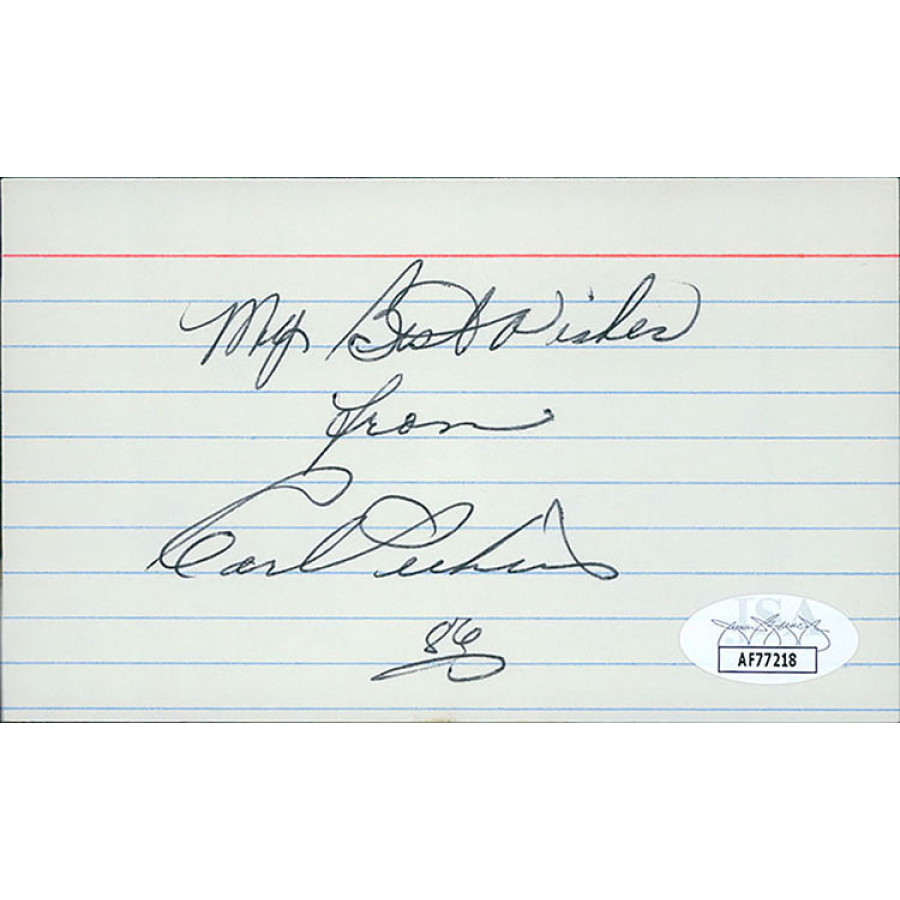 My Best Wishes
from
Carl Perkins
86
JSA
AF77218